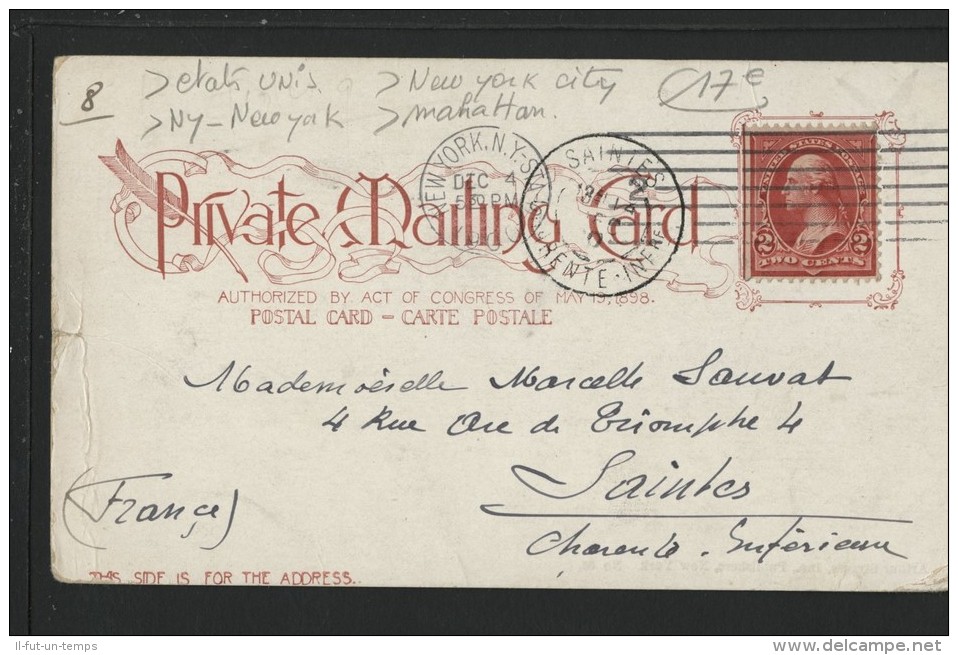 8
> etats unis
> New york city
17e
> NY - New york
> mahattan.
NEW YORK, N.Y. STA
DEC 4
5 30 PM
SAINTES
CHARENTE-INFRE
Private Mailing Card
UNITED STATES POSTAGE
2 2
TWO CENTS
AUTHORIZED BY ACT OF CONGRESS OF MAY 19, 1898.
POSTAL CARD – CARTE POSTALE
Mademoiselle Marcelle Sauvat
4 Rue Arc de Triomphe 4
Saintes
(France)
Charente - Inférieure
THIS SIDE IS FOR THE ADDRESS.
il-fut-un-temps
www.delcampe.net